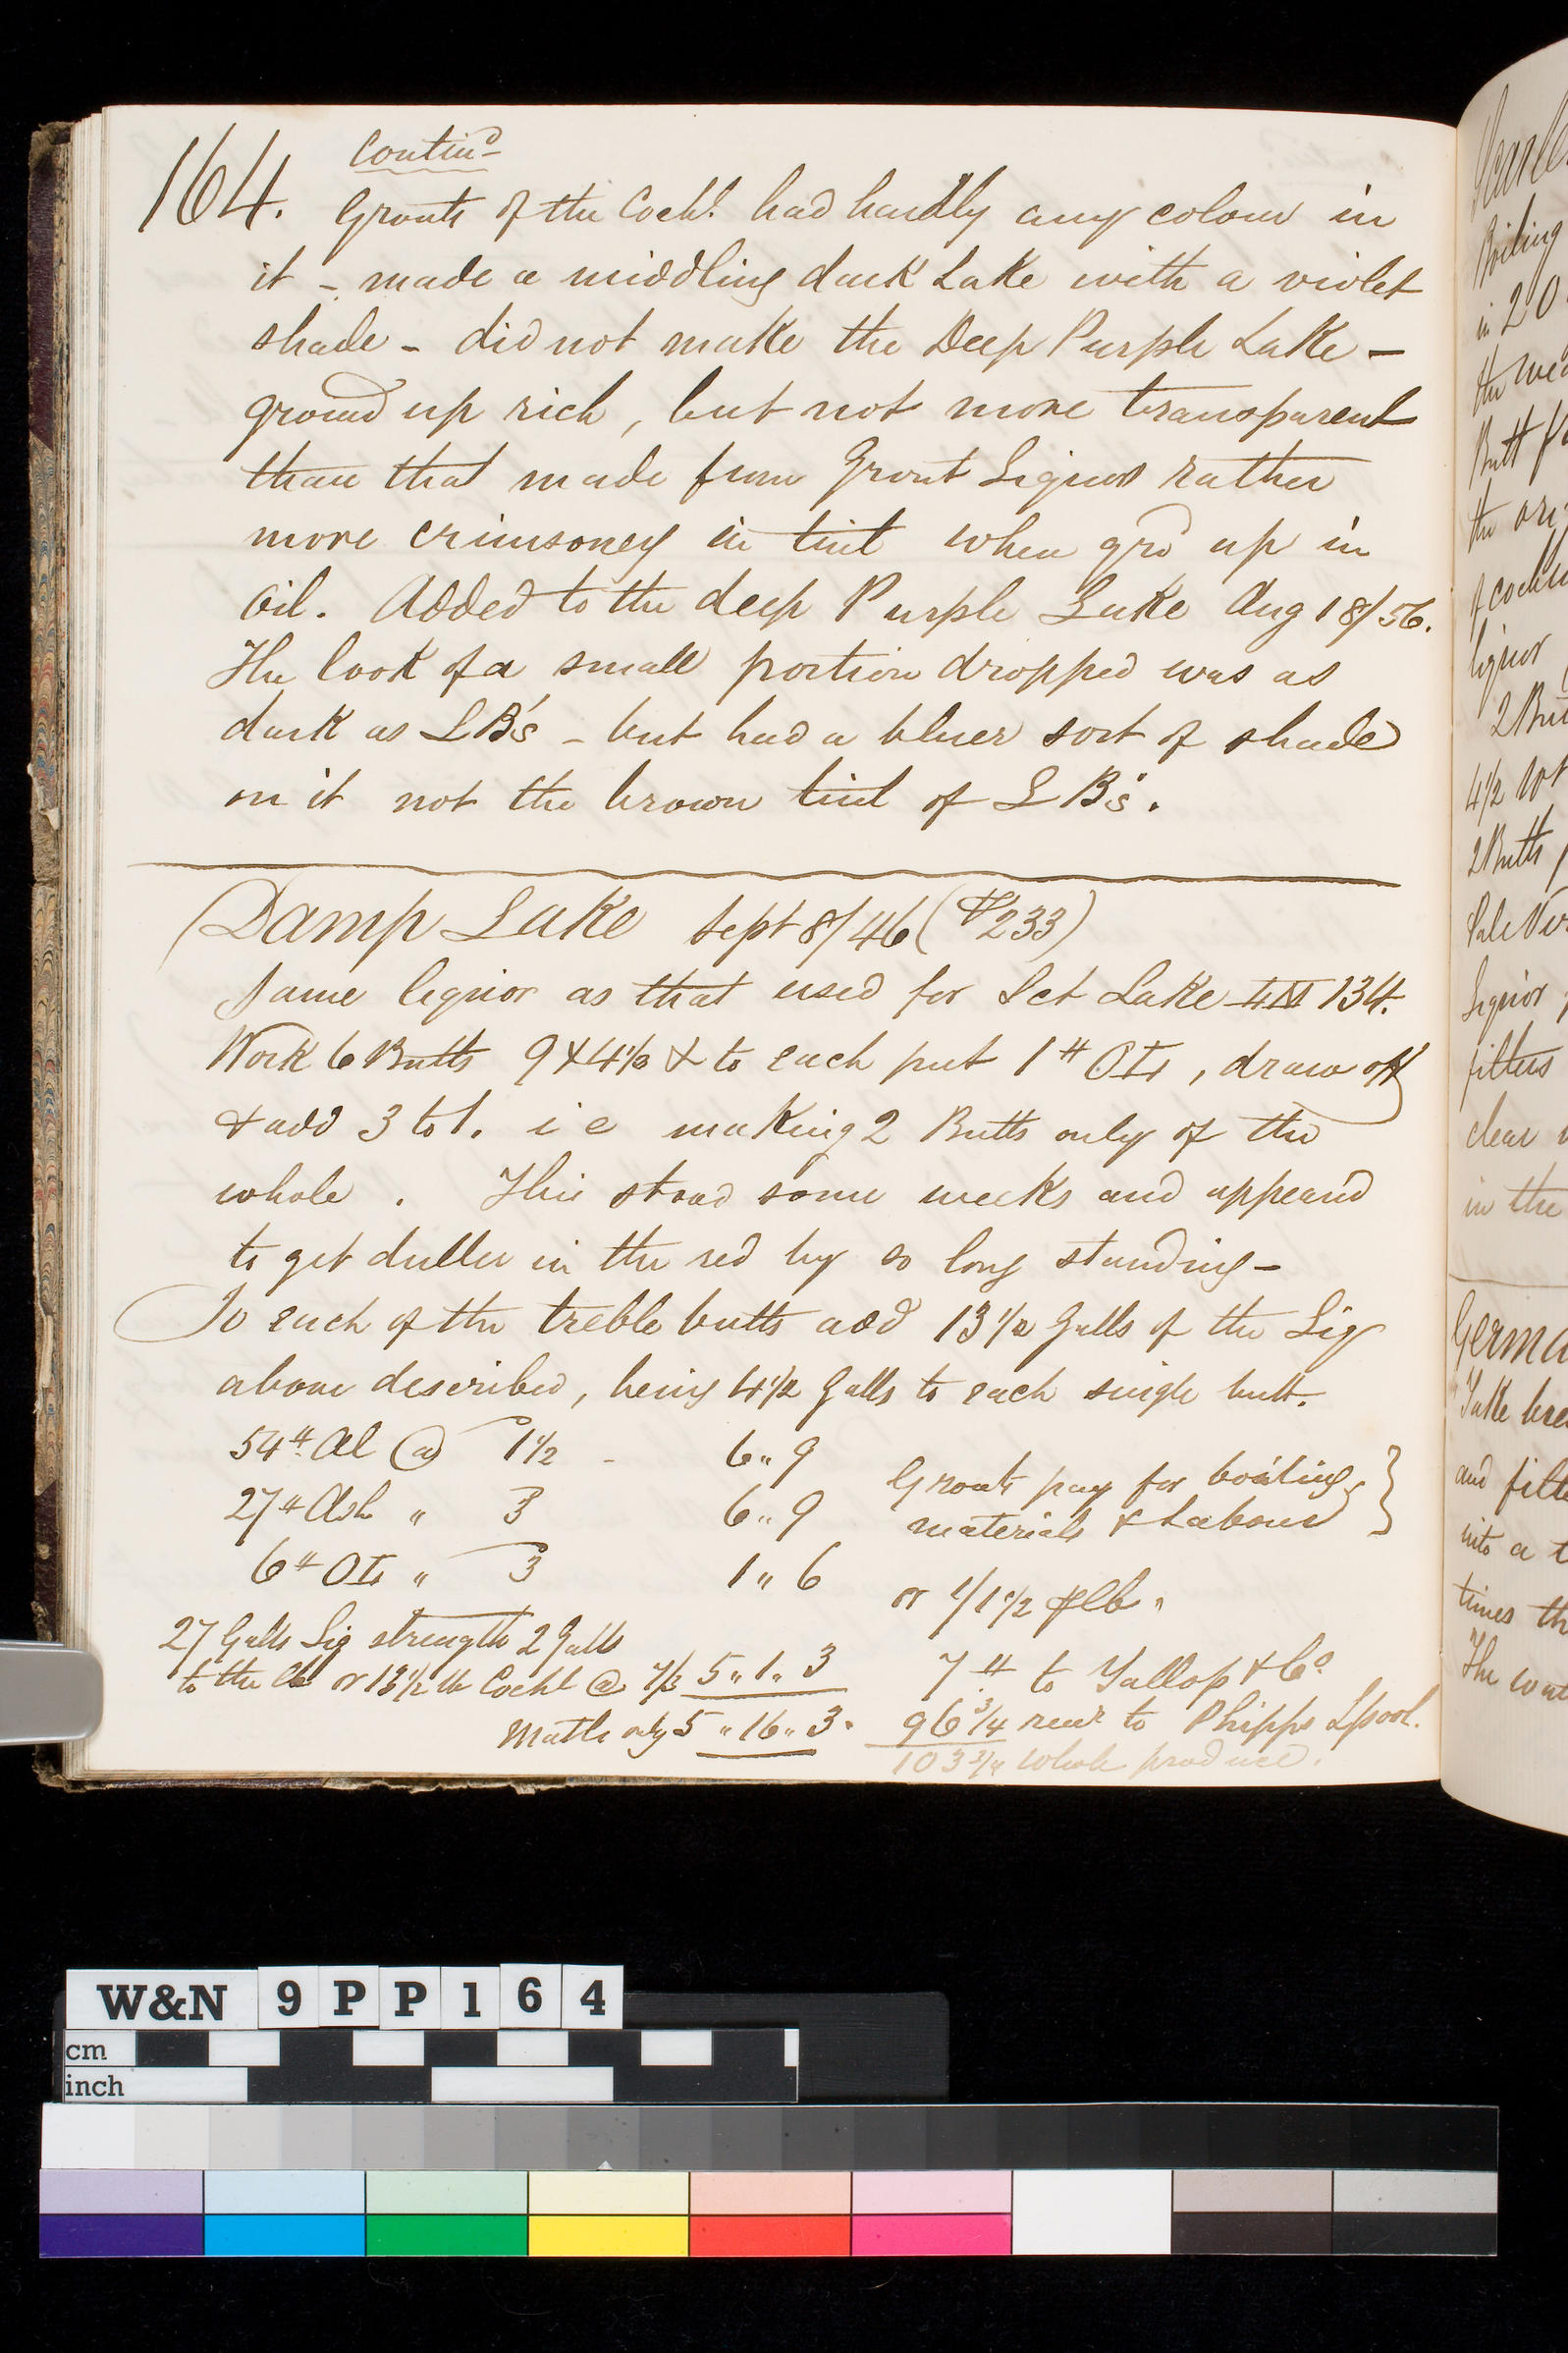 164. Contin^d
Grouts of the Cochl. had hardly any colour in
it - made a middling dark Lake with a violet
shade - did not make the Deep Purple Lake -
ground up rich, but not more transparent
than that made from Grout Liquor rather
more crimsoney in tint when grd up in
oil. Added to the deep Purple Lake Aug 18/56.
The look of a small portion dropped was as
dark as LB's - but had a bluer sort of shade
on it not the brown tint of LB's.
Damp Lake Sept 8/46 (P233)
Same liquor as that used for Sct Lake 134.
Work 6 Butts 9 & 4½ & to each put 1# OTr, draw off
& add 3 to 1. i e making 2 Butts only of the
whole. This stood some weeks and appeard
to get duller in the red by so long standing -
To each of the treble butts add 13½ Galls of the Liq
above described, being 4½ Galls to each single butt.
54# Al @ 1½ - 6„9
27# Ash „ 3 6„9
Grouts pay for boiling
materials & Labour }
6# OTr „ 3 1„6
or 1/1½ P lb.
27 Galls Liq strength 2 Galls
to the lb or 13½ lb Cochl @ 7/3 5„1„3
Matls only 5„16„3.
7# to Tallop & Co
96¾ rem^r to Phipps Lpool.
103¾ whole produce.
Boiling
in 20
the
Butt
the
liquor
4½
2 Butts
Liquor
filters
clear
in the
Germa
Take
and
into a
times
The
W&N 9PP164
cm
inch